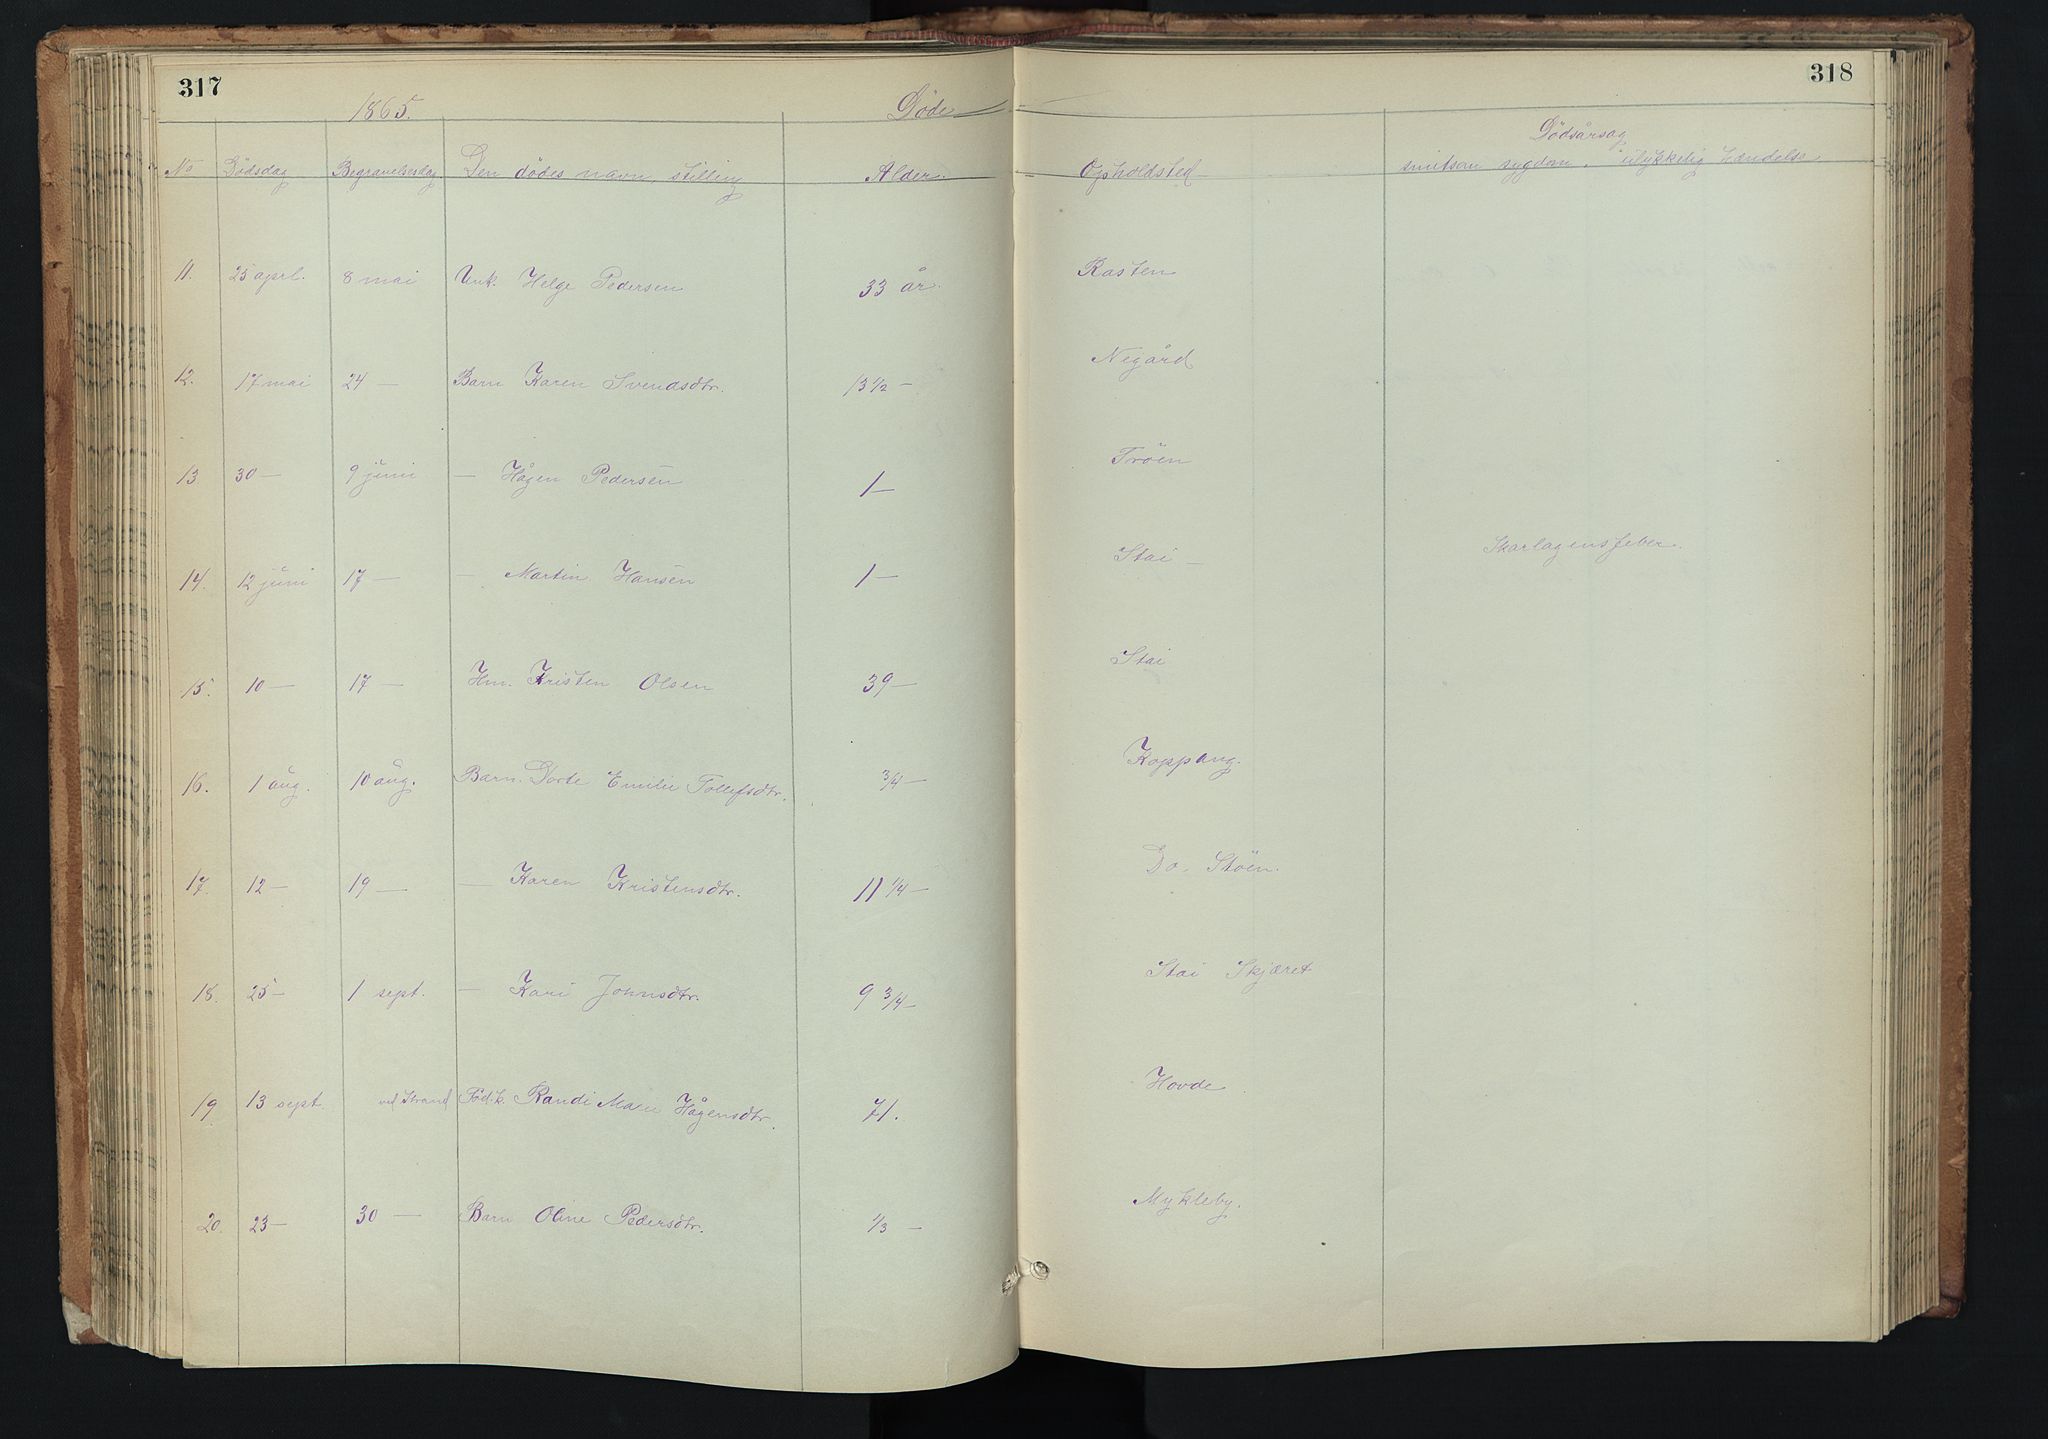 317
318
1865. Døde
Dødsårsag
No Dødsdag Begravelsesdag Den dødes navn, stilling Alder. Opholdsted smitsom sygdom. ulykkelig hændelse
11. 25 aprl. 8 mai Unk. Helge Pedersen 33 år. Rasten
12. 17 mai 24 — Barn Karen Svendsdtr. 13 1/2 — Negård
13. 30 — 9 juni — Hågen Pedersen 1 — Trøen
14. 12 juni 17 — — Martin Hansen 1 — Stai — Skarlagensfeber.
15. 10 — 17 — Hm. Kristen Olsen 39 — Stai
16. 1 aug. 10 aug. Barn. Dorte Emilie Tollefsdtr. 3/4 — Koppang.
17. 12 — 19 — — Karen Kristensdtr. 11 1/4 — Do. Støen.
18. 25 — 1 sept. — Kari Johnsdtr. 9 3/4 — Stai Skjæret
19. 13 sept. ved Strand Fød.k. Randi Marie Hågensdtr. 71. Hovde
20. 23 — 30 — Barn Oline Pedersdtr. 1/3 — Mykleby.